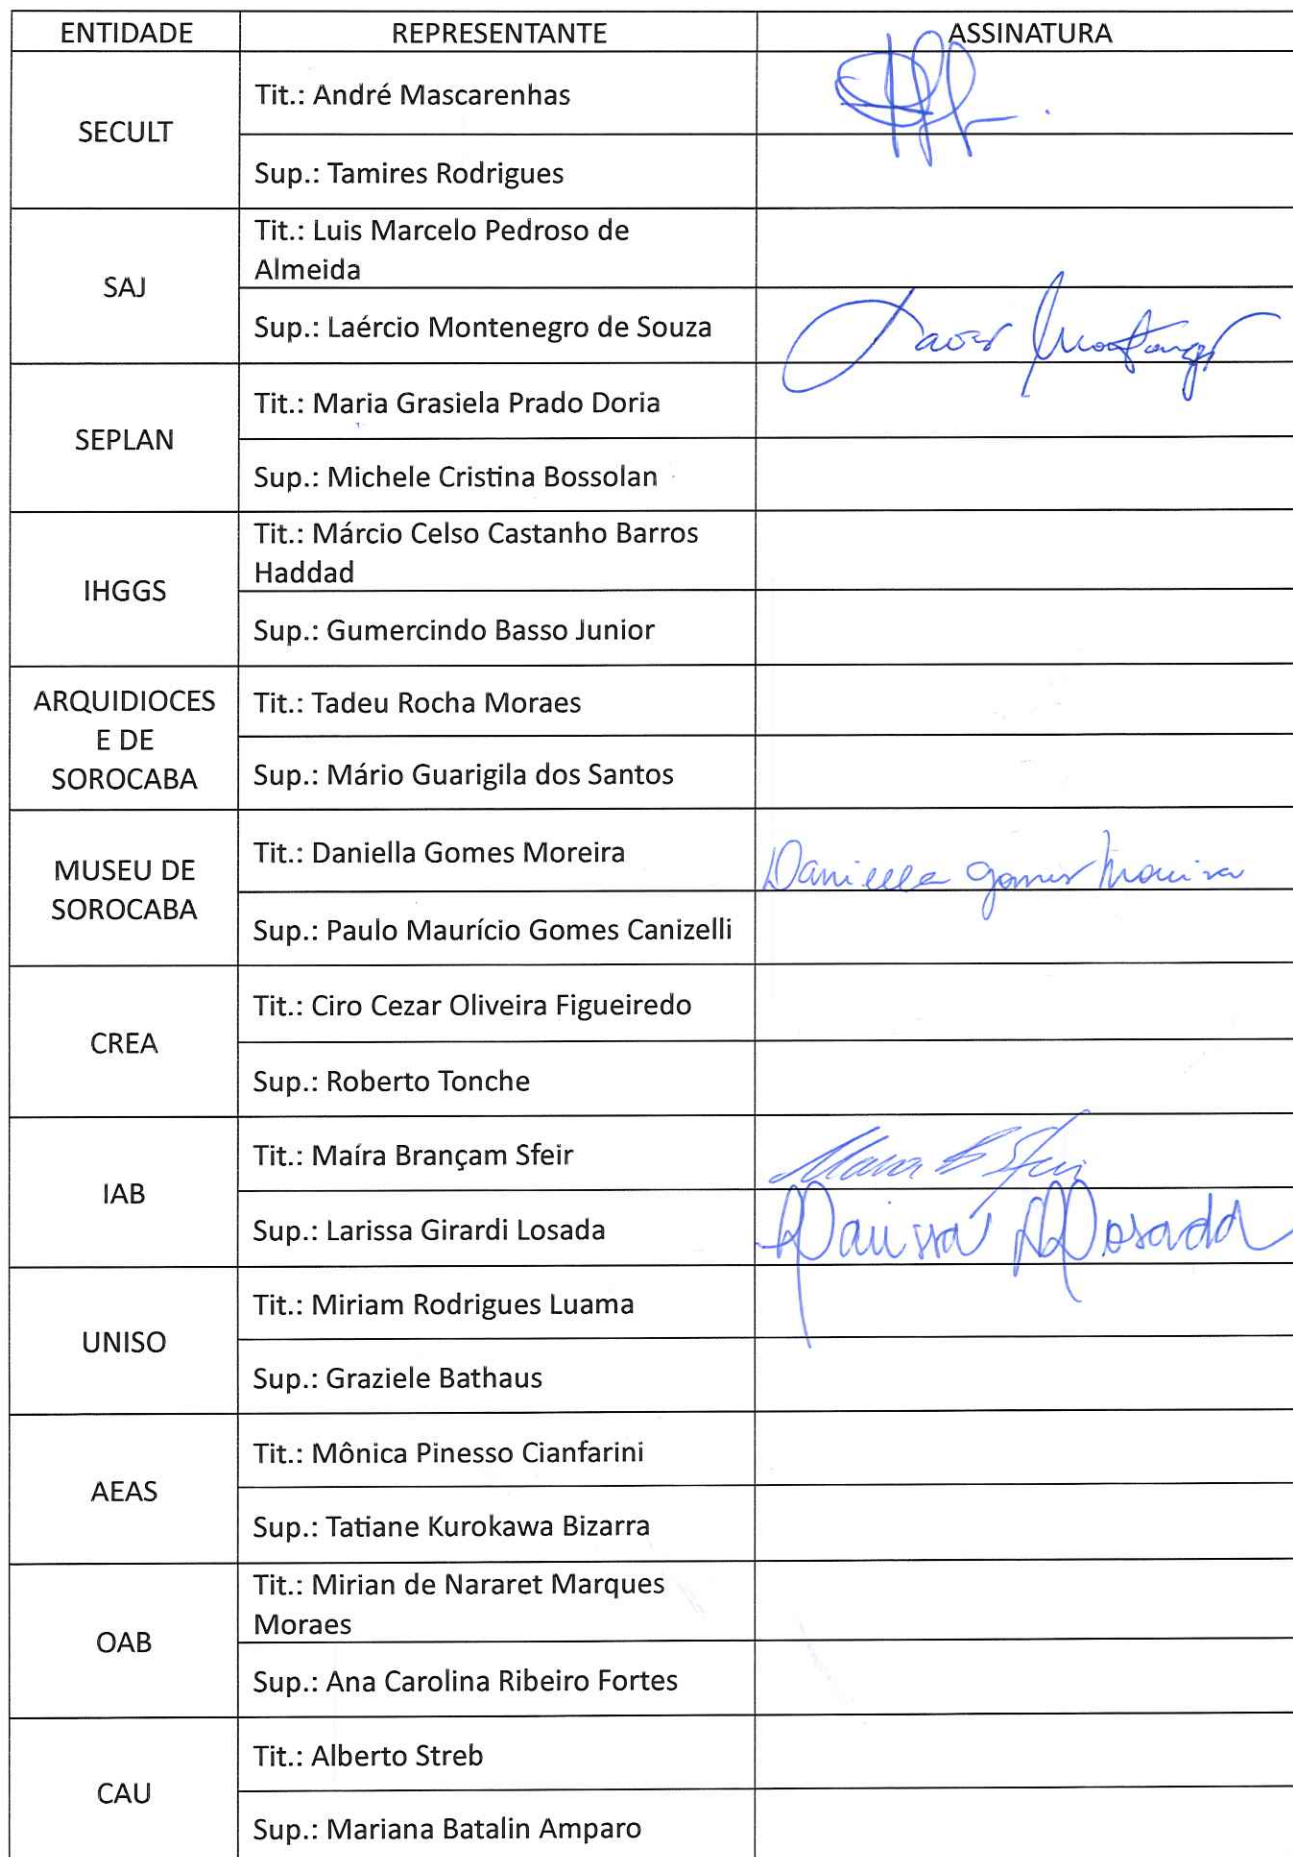 ENTIDADE REPRESENTANTE ASSINATURA
SECULT
Tit.: André Mascarenhas
Sup.: Tamires Rodrigues
SAJ
Tit.: Luis Marcelo Pedroso de
Almeida
Sup.: Laércio Montenegro de Souza
SEPLAN
Tit.: Maria Grasiela Prado Doria
Sup.: Michele Cristina Bossolan
IHGGS
Tit.: Márcio Celso Castanho Barros
Haddad
Sup.: Gumercindo Basso Junior
ARQUIDIOCES
E DE
SOROCABA
Tit.: Tadeu Rocha Moraes
Sup.: Mário Guarigila dos Santos
MUSEU DE
SOROCABA
Tit.: Daniella Gomes Moreira
Daniella Gomes Moreira
Sup.: Paulo Maurício Gomes Canizelli
CREA
Tit.: Ciro Cezar Oliveira Figueiredo
Sup.: Roberto Tonche
IAB
Tit.: Maíra Brançam Sfeir
Maira B Sfeir
Sup.: Larissa Girardi Losada
Larissa Losada
UNISO
Tit.: Miriam Rodrigues Luama
Sup.: Graziele Bathaus
AEAS
Tit.: Mônica Pinesso Cianfarini
Sup.: Tatiane Kurokawa Bizarra
OAB
Tit.: Mirian de Nararet Marques
Moraes
Sup.: Ana Carolina Ribeiro Fortes
CAU
Tit.: Alberto Streb
Sup.: Mariana Batalin Amparo